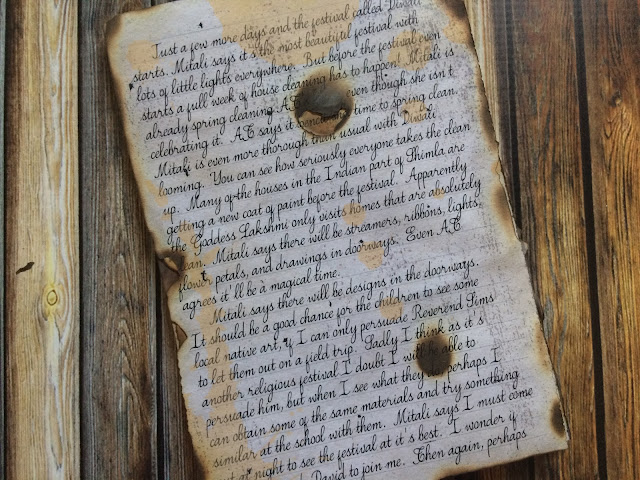 Just a few more days and the festival called Diwali
starts. Mitali says it's the most beautiful festival with
lots of little lights everywhere. But before the festival even
starts a full week of house cleaning has to happen! Mitali is
already spring cleaning even though she isn't
celebrating it. AC says it time to spring clean.
Mitali is even more thorough than usual with Diwali
looming. You can see how seriously everyone takes the clean
up. Many of the houses in the Indian part of Shimla are
getting a new coat of paint before the festival. Apparently
the Goddess Lakshmi only visits homes that are absolutely
clean. Mitali says there will be streamers, ribbons, lights,
flower petals, and drawings in doorways. Even AC
agrees it'll be a magical time.
Mitali says there will be designs in the doorways.
It should be a good chance for the children to see some
local native art, if I can only persuade Reverend Sims
to let them out on a field trip. Sadly I think as it's
another religious festival I doubt I will be able to
persuade him, but when I see what they do perhaps I
can obtain some of the same materials and try something
similar at the school with them. Mitali says I must come
out at night to see the festival at it s best. I wonder if
David to join me. Then again, perhaps